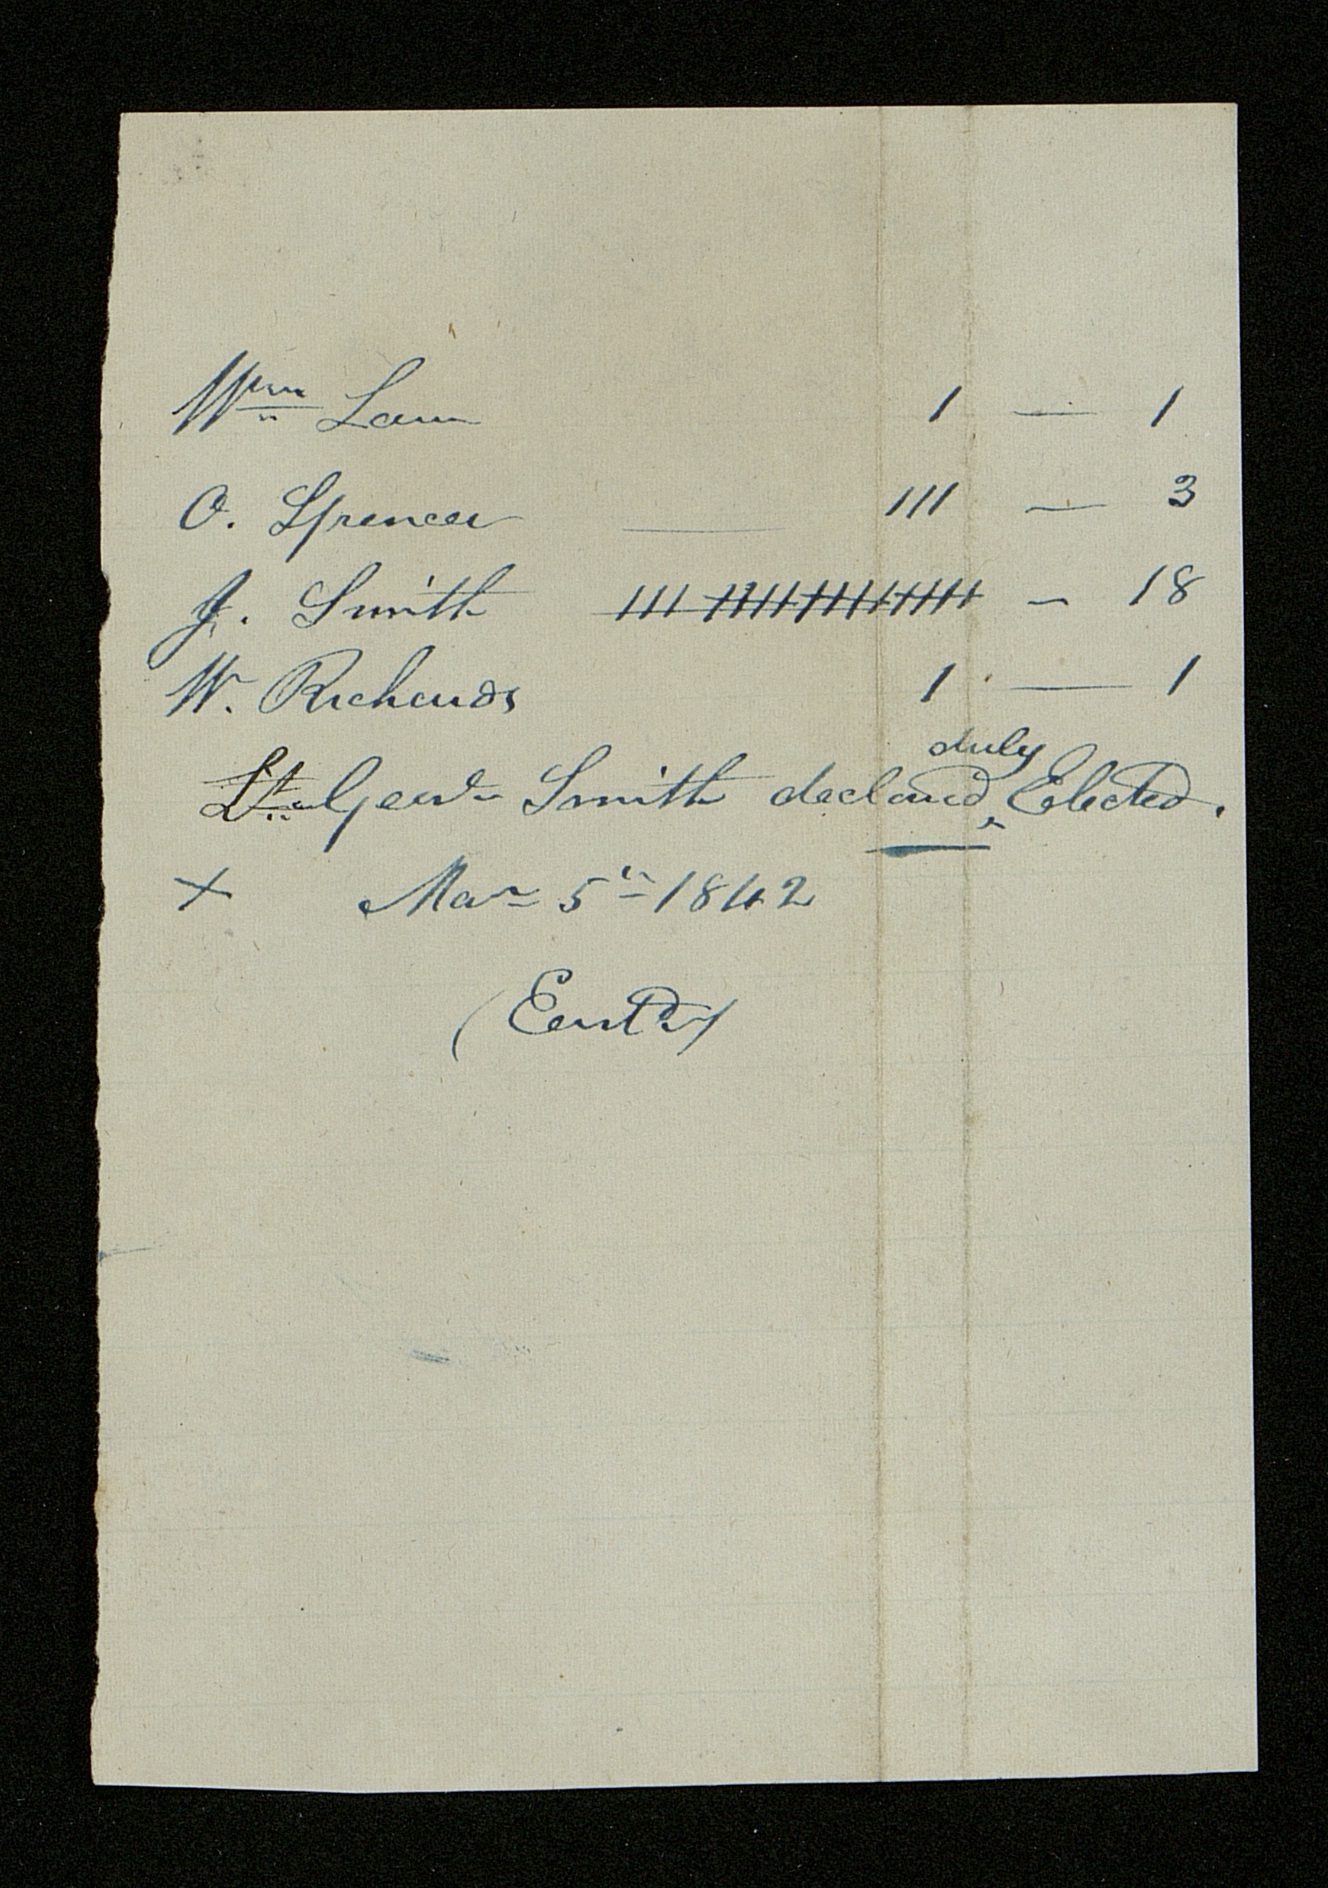 Wm Law 1 — 1
O. Spencer — 111 — 3
J. Smith 111 1111 1111 1111 111 — 18
W. Richards 1 — 1
Lt. Genl Smith declared duly Elected.
x Mar 5th 1842